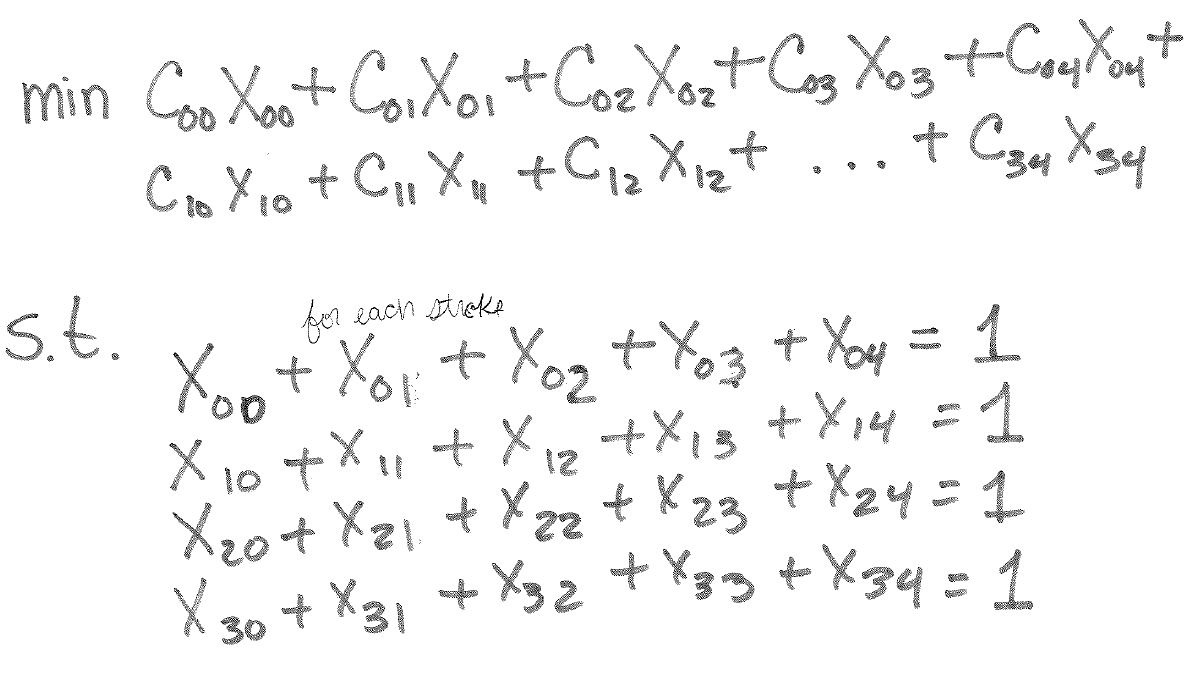 min C00 X00 + C01 X01 + C02 X02 + C03 X03 + C04 X04 +
C10 X10 + C11 X11 + C12 X12 + ... + C34 X34
s.t.
for each stroke
X00 + X01 + X02 + X03 + X04 = 1
X10 + X11 + X12 + X13 + X14 = 1
X20 + X21 + X22 + X23 + X24 = 1
X30 + X31 + X32 + X33 + X34 = 1